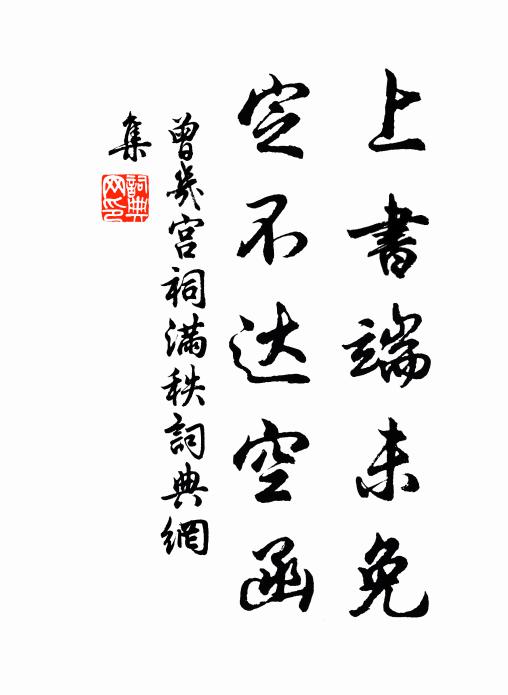 上書端未免
定不达空函
曾幾宫祠滿秩詞典網
集
詞典網印